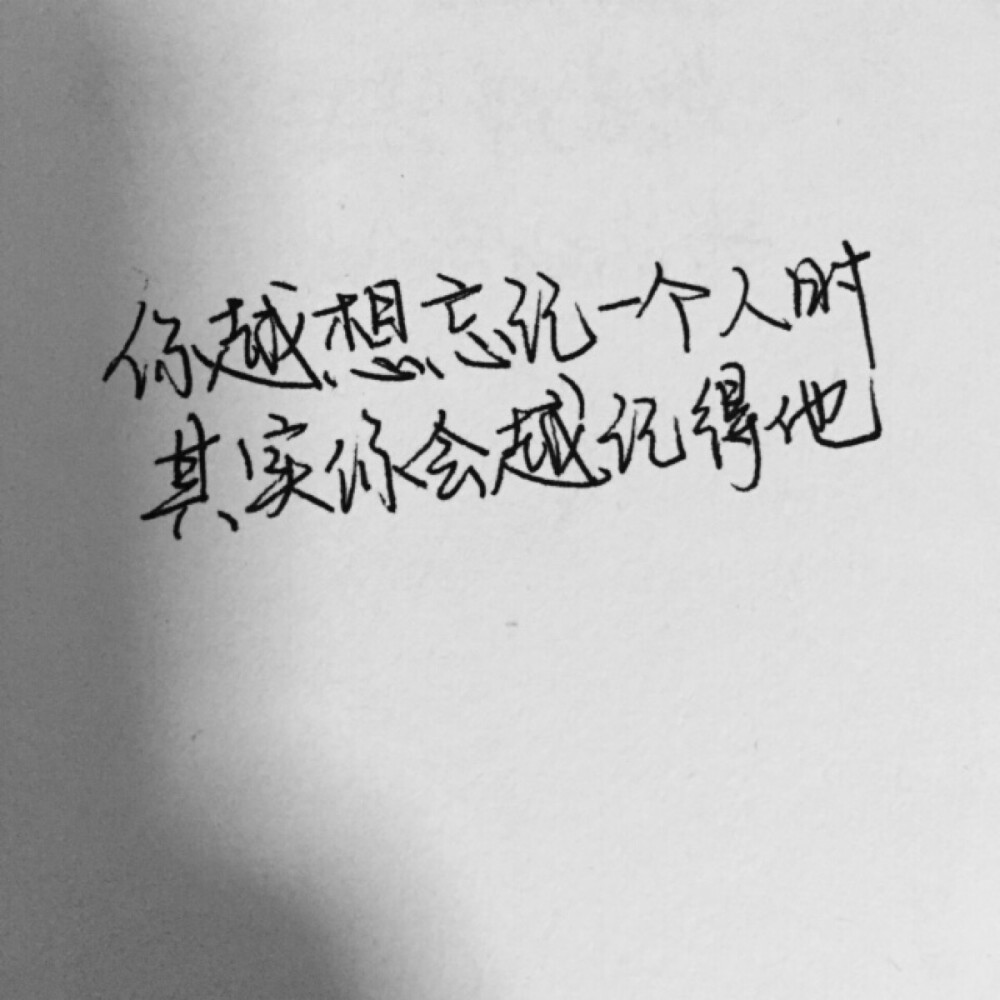 你越想忘记一个人时
其实你会越记得他